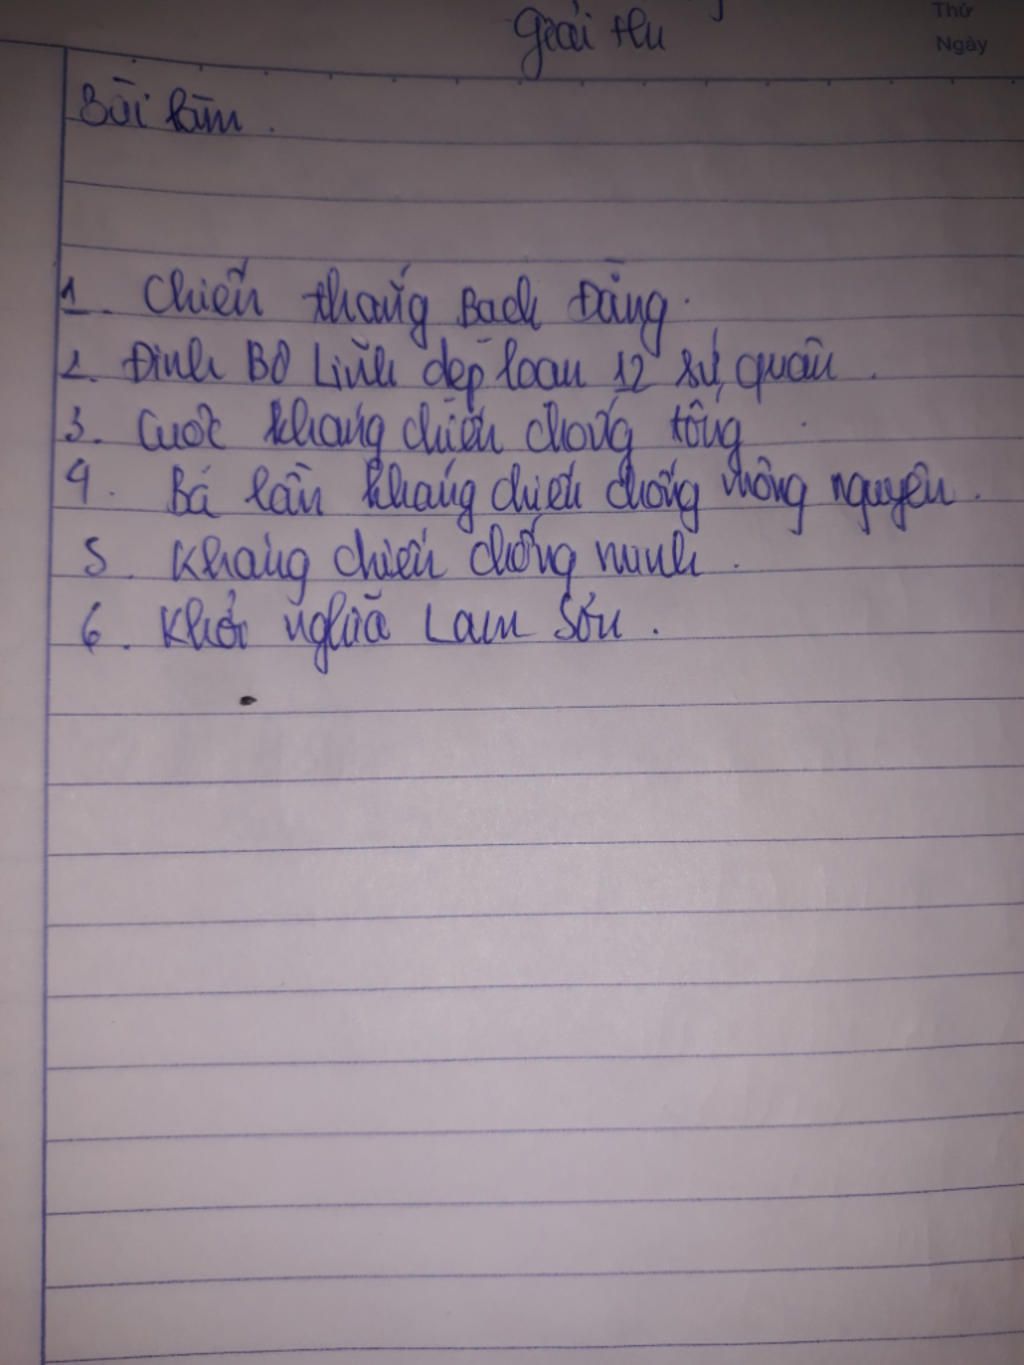 giải thu
Thứ
Ngày
Bài làm.
1. Chiến thắng Bach Đằng.
2. Đinh Bộ Lĩnh dẹp loan 12 sứ quân.
3. Cuộc kháng chiến chống tống.
4. Bá lần kháng chiến chống mông nguyên.
5. Kháng chiến chống minh.
6. Khởi nghĩa Lam Sơn.